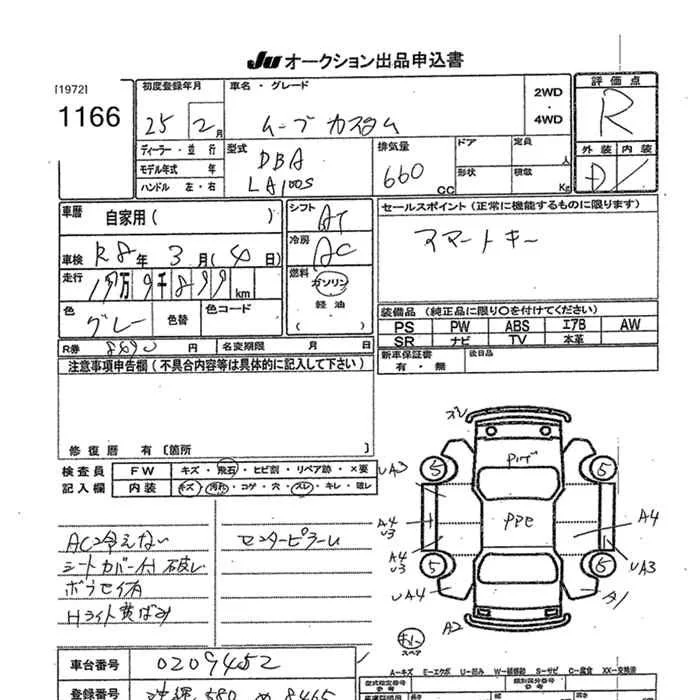 JU オークション出品申込書
[1972]
1166
初度登録年月
25 2月
車名・グレード
ムーブ カスタム
2WD
・
4WD
評価点
R
ディーラー・並行
モデル年式 年
ハンドル 左・右
型式
DBA
LA100S
排気量
660 CC
ドア
形状
定員
人
積載
Kg
外装 内装
D /
車歴
自家用( )
シフト
AT
セールスポイント(正常に機能するものに限ります)
スマートキー
車検 R8年 3月(4日)
冷房
AC
走行
万9千899km
燃料
ガソリン
軽油
( )
色
グレー
色替
色コード
装備品(純正品に限り○を付けてください)
PS PW ABS エアB AW
SR ナビ TV 本革
R券 8690円 名変期限 月 日
新車保証書
有・無
後日品
注意事項申告欄(不具合内容等は具体的に記入して下さい)
修復歴 有〔箇所 〕
検査員
記入欄
FW キズ・飛石・ヒビ割・リペア跡・×要
内装 キズ・汚れ・コゲ・穴・スレ・キレ・破レ
AC冷えない
シートカバー付 破レ
ボラセイ有
Hライト黄ばみ
センターピラーU
ズレ
UA3
5
5
A4
U3
PPE
A4
A4
U3
UA3
5
5
UA4
A1
A2
キレ
スペア
A-キズ E-エクボ U-凹み W-補修跡 S-サビ C-腐食 XX-交換済
車台番号 0209452
型式指定番号
類別区分番号
登録番号 沖縄 580 め 8465